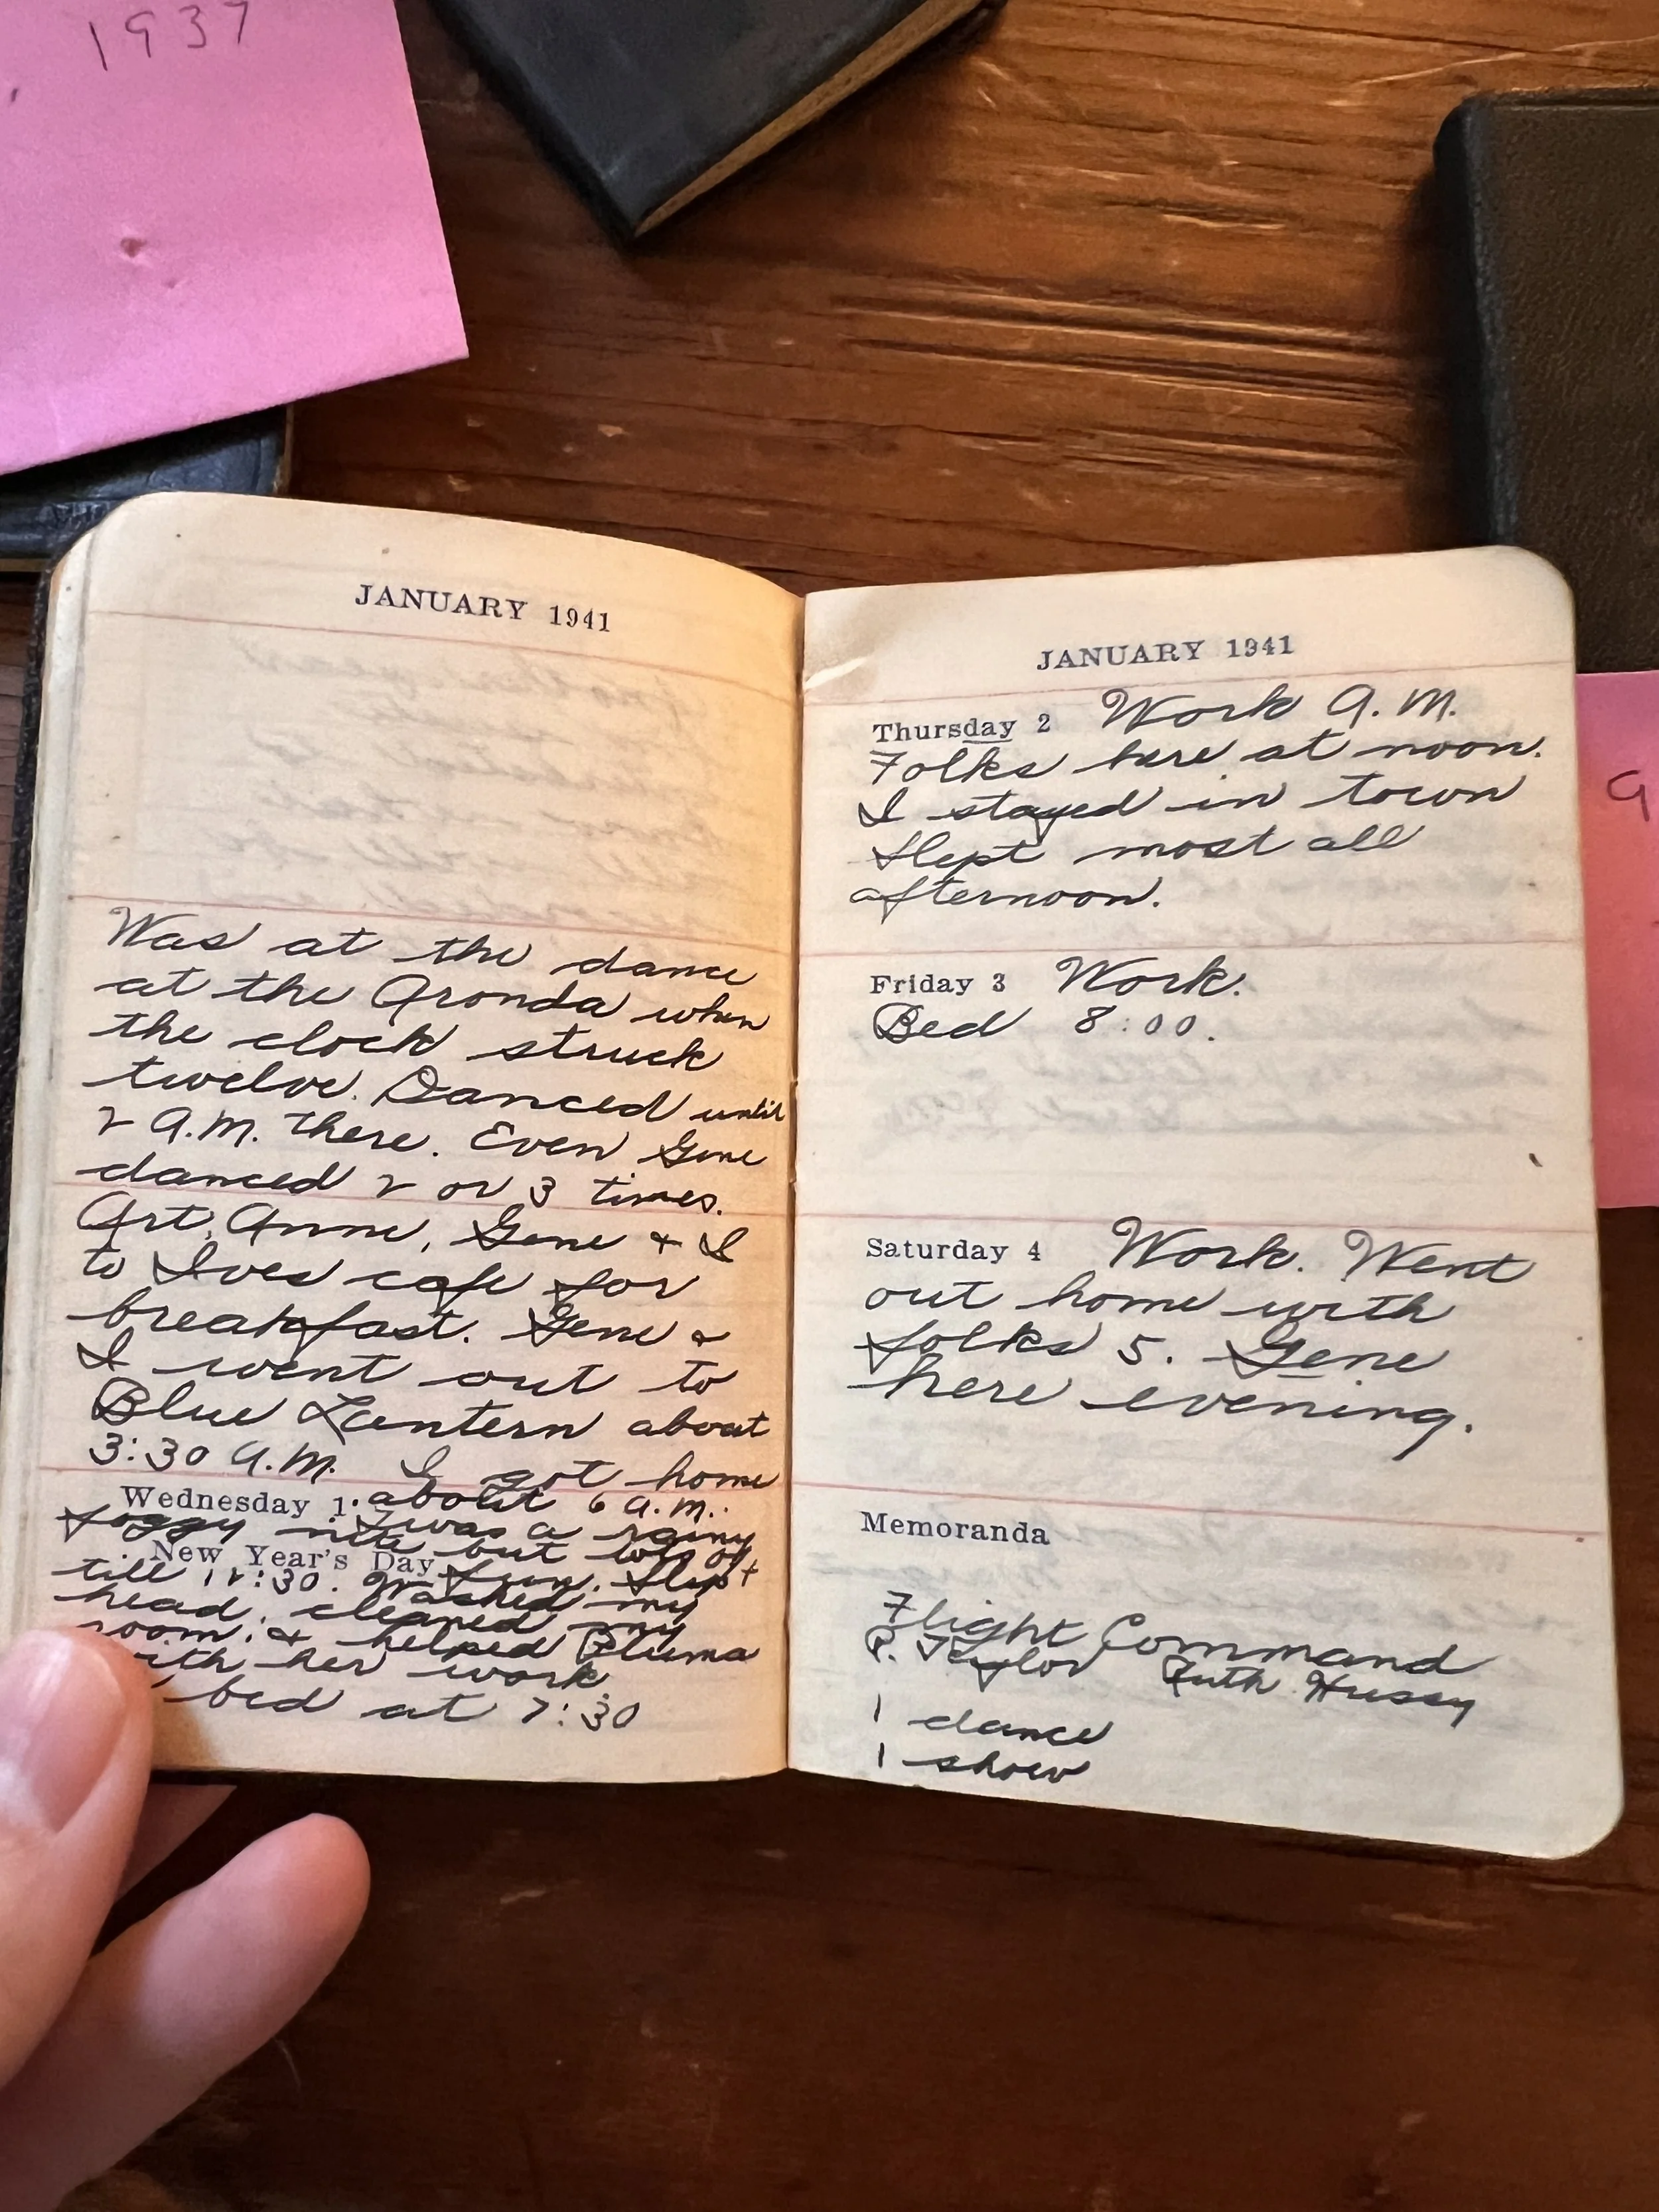 1937
JANUARY 1941
Was at the dance
at the Aronda when
the clock struck
twelve. Danced until
2 A.M. there. Even Gene
danced 2 or 3 times.
Art, Anne, Gene & I
to Ives cafe for
breakfast. Gene &
I went out to
Blue Lantern about
3:30 A.M. I got home
Wednesday 1. about 6 a.m.
foggy nite but lots of
New Year's Day fun. Slept
till 12:30. Washed my
head, cleaned my
room, & helped Pluma
with her work
bed at 7:30
JANUARY 1941
Thursday 2 Work A.M.
Folks here at noon.
I stayed in town
Slept most all
afternoon.
Friday 3 Work.
Bed 8:00.
Saturday 4 Work. Went
out home with
folks 5. Gene
here evening.
Memoranda
Flight Command
R. Taylor Ruth Hussy
1 dance
1 show